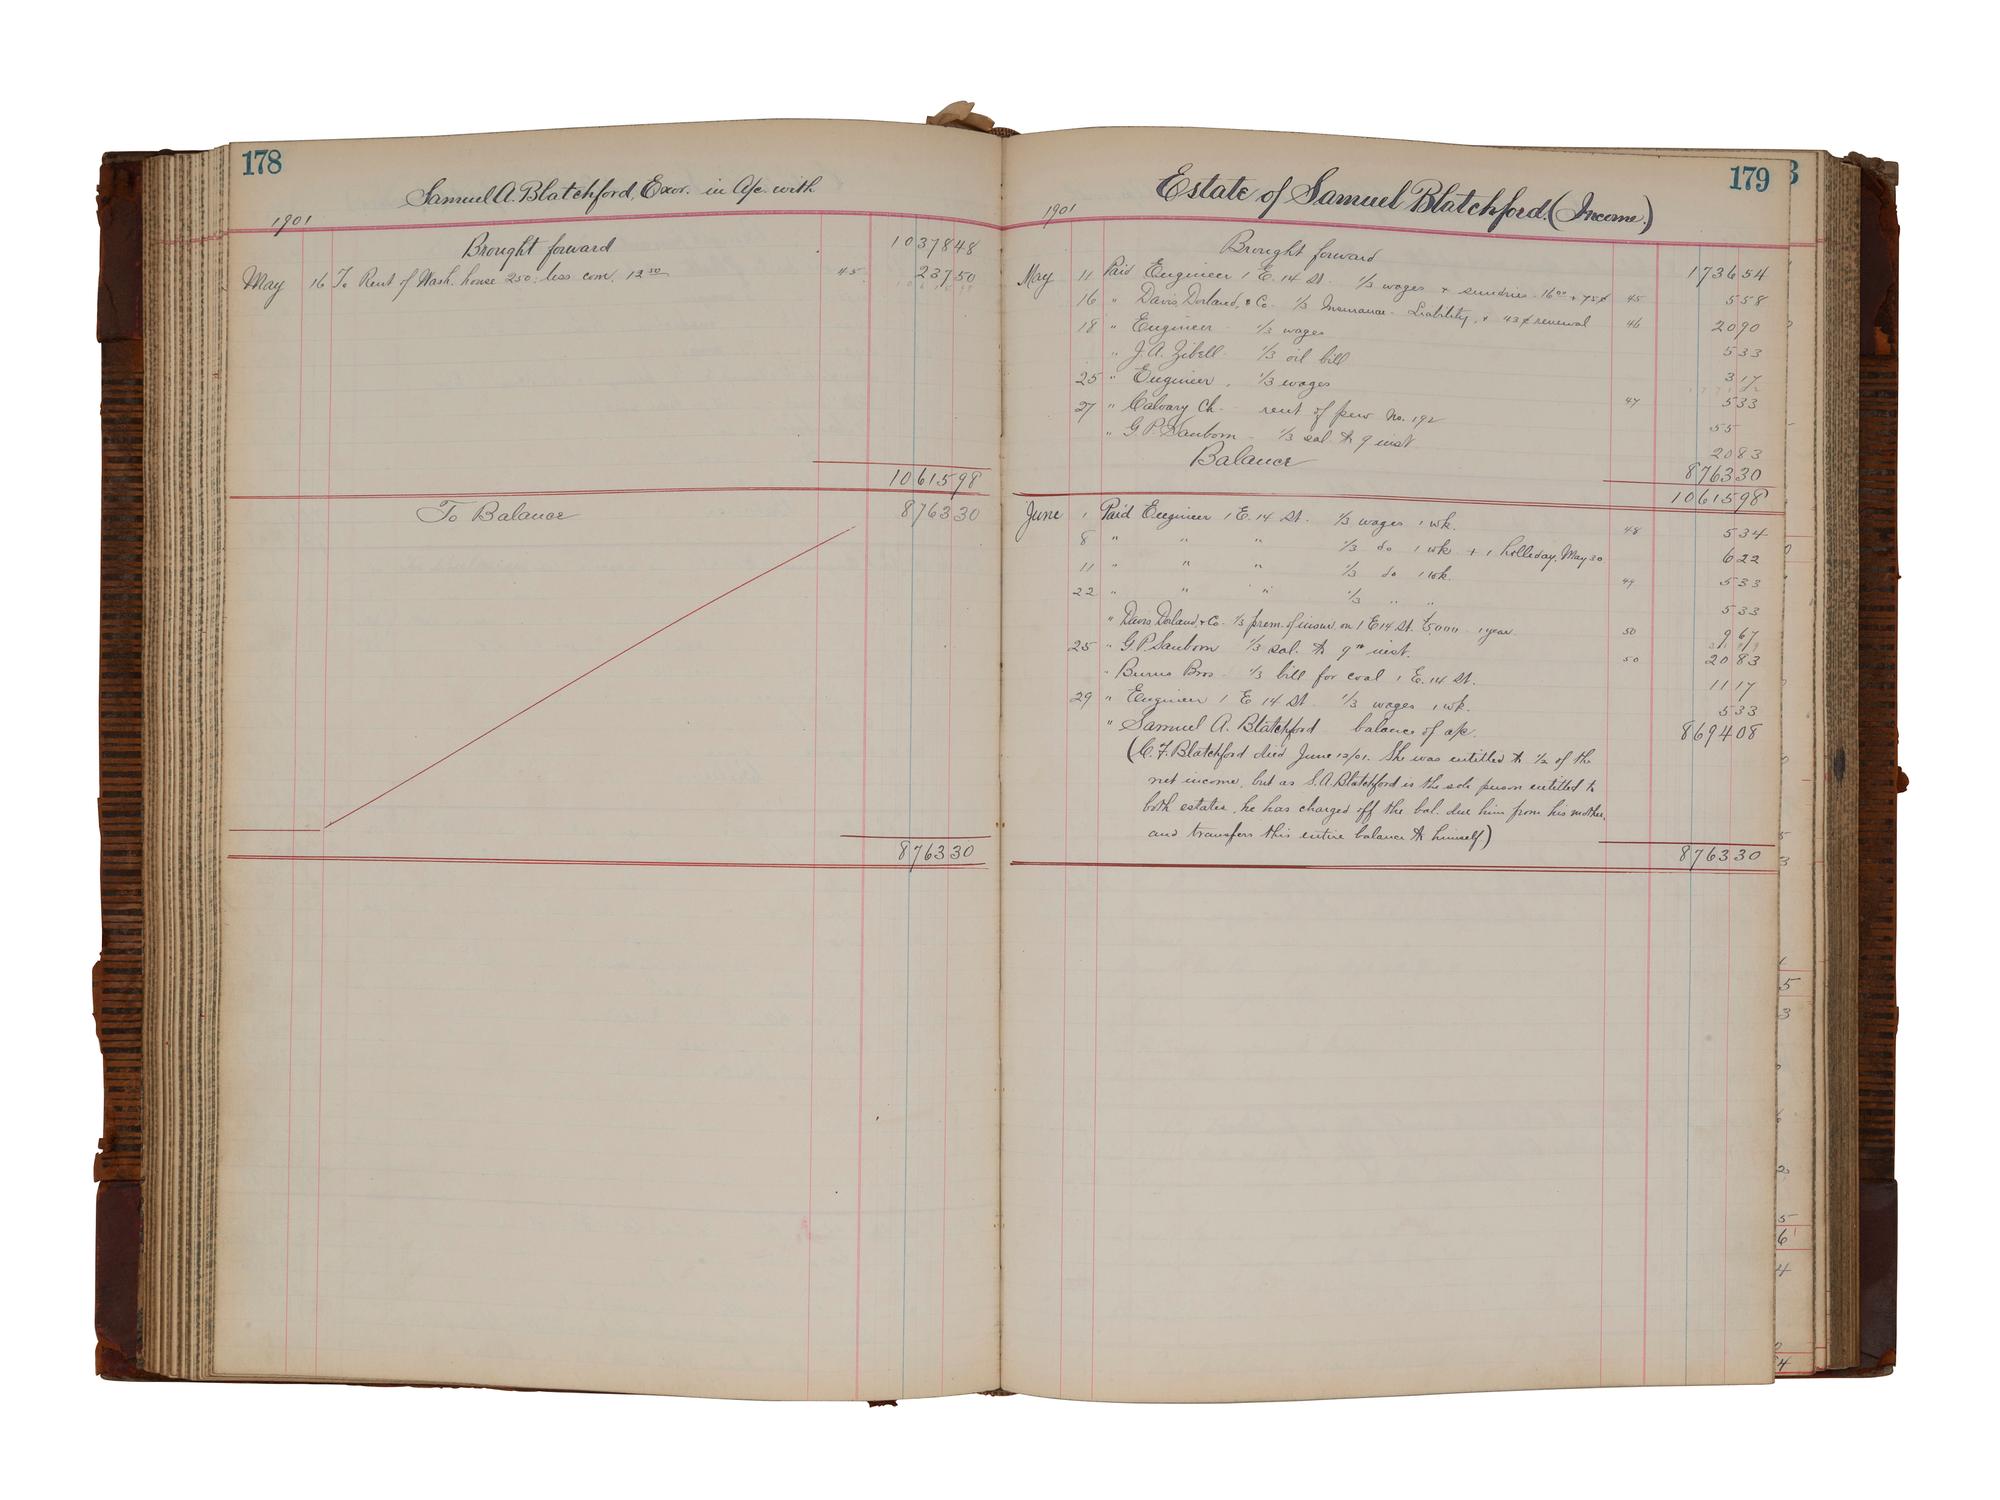 178
Samuel A. Blatchford, Exor. in A/c. with
1901
Brought forward 10378 48
May 16 To Rent of Wash. house 250. less com. 12 50 45 237 50
10615 98
To Balance 8763 30
8763 30
179
Estate of Samuel Blatchford. (Income.)
1901
Brought forward 1736 54
May 11 Paid Engineer 1 E. 14 St. 1/3 wages & sundries. 16 00 + 75¢ 45 5 58
16 " Davis, Dorland, & Co. 1/3 Insurance - Liability, & 43¢ renewal 46 20 90
18 " Engineer 1/3 wages 5 33
" J. A. Zibell 1/3 oil bill 3 17
25 " Engineer, 1/3 wages 47 5 33
27 " Calvary Ch. rent of pew No. 192 55
" G. P. Sanborn - 1/3 sal. to 9 inst 20 83
Balance 8763 30
10615 98
June 1 Paid Engineer 1 E. 14 St. 1/3 wages 1 wk. 48 5 34
8 " " " 1/3 do 1 wk + 1 holliday, May 30 6 22
11 " " " 1/3 do 1 wk. 49 5 33
22 " " " 1/3 " " 5 33
" Davis Dorland, & Co. 1/3 prem. of insur. on 1 E 14 St. 5,000 1 year 50 9 67
25 " G. P. Sanborn 1/3 sal. to 9th inst. 50 20 83
" Burns Bros. 1/3 bill for coal 1 E. 14 St. 11 17
29 " Engineer 1 E 14 St. 1/3 wages 1 wk. 5 33
" Samuel A. Blatchford balance of a/c. 8694 08
(C. F. Blatchford died June 12/01. She was entitled to 1/2 of the
net income, but as S. A. Blatchford is the sole person entitled to
both estates, he has charged off the bal. due him from his mother,
and transfers this entire balance to himself)
8763 30